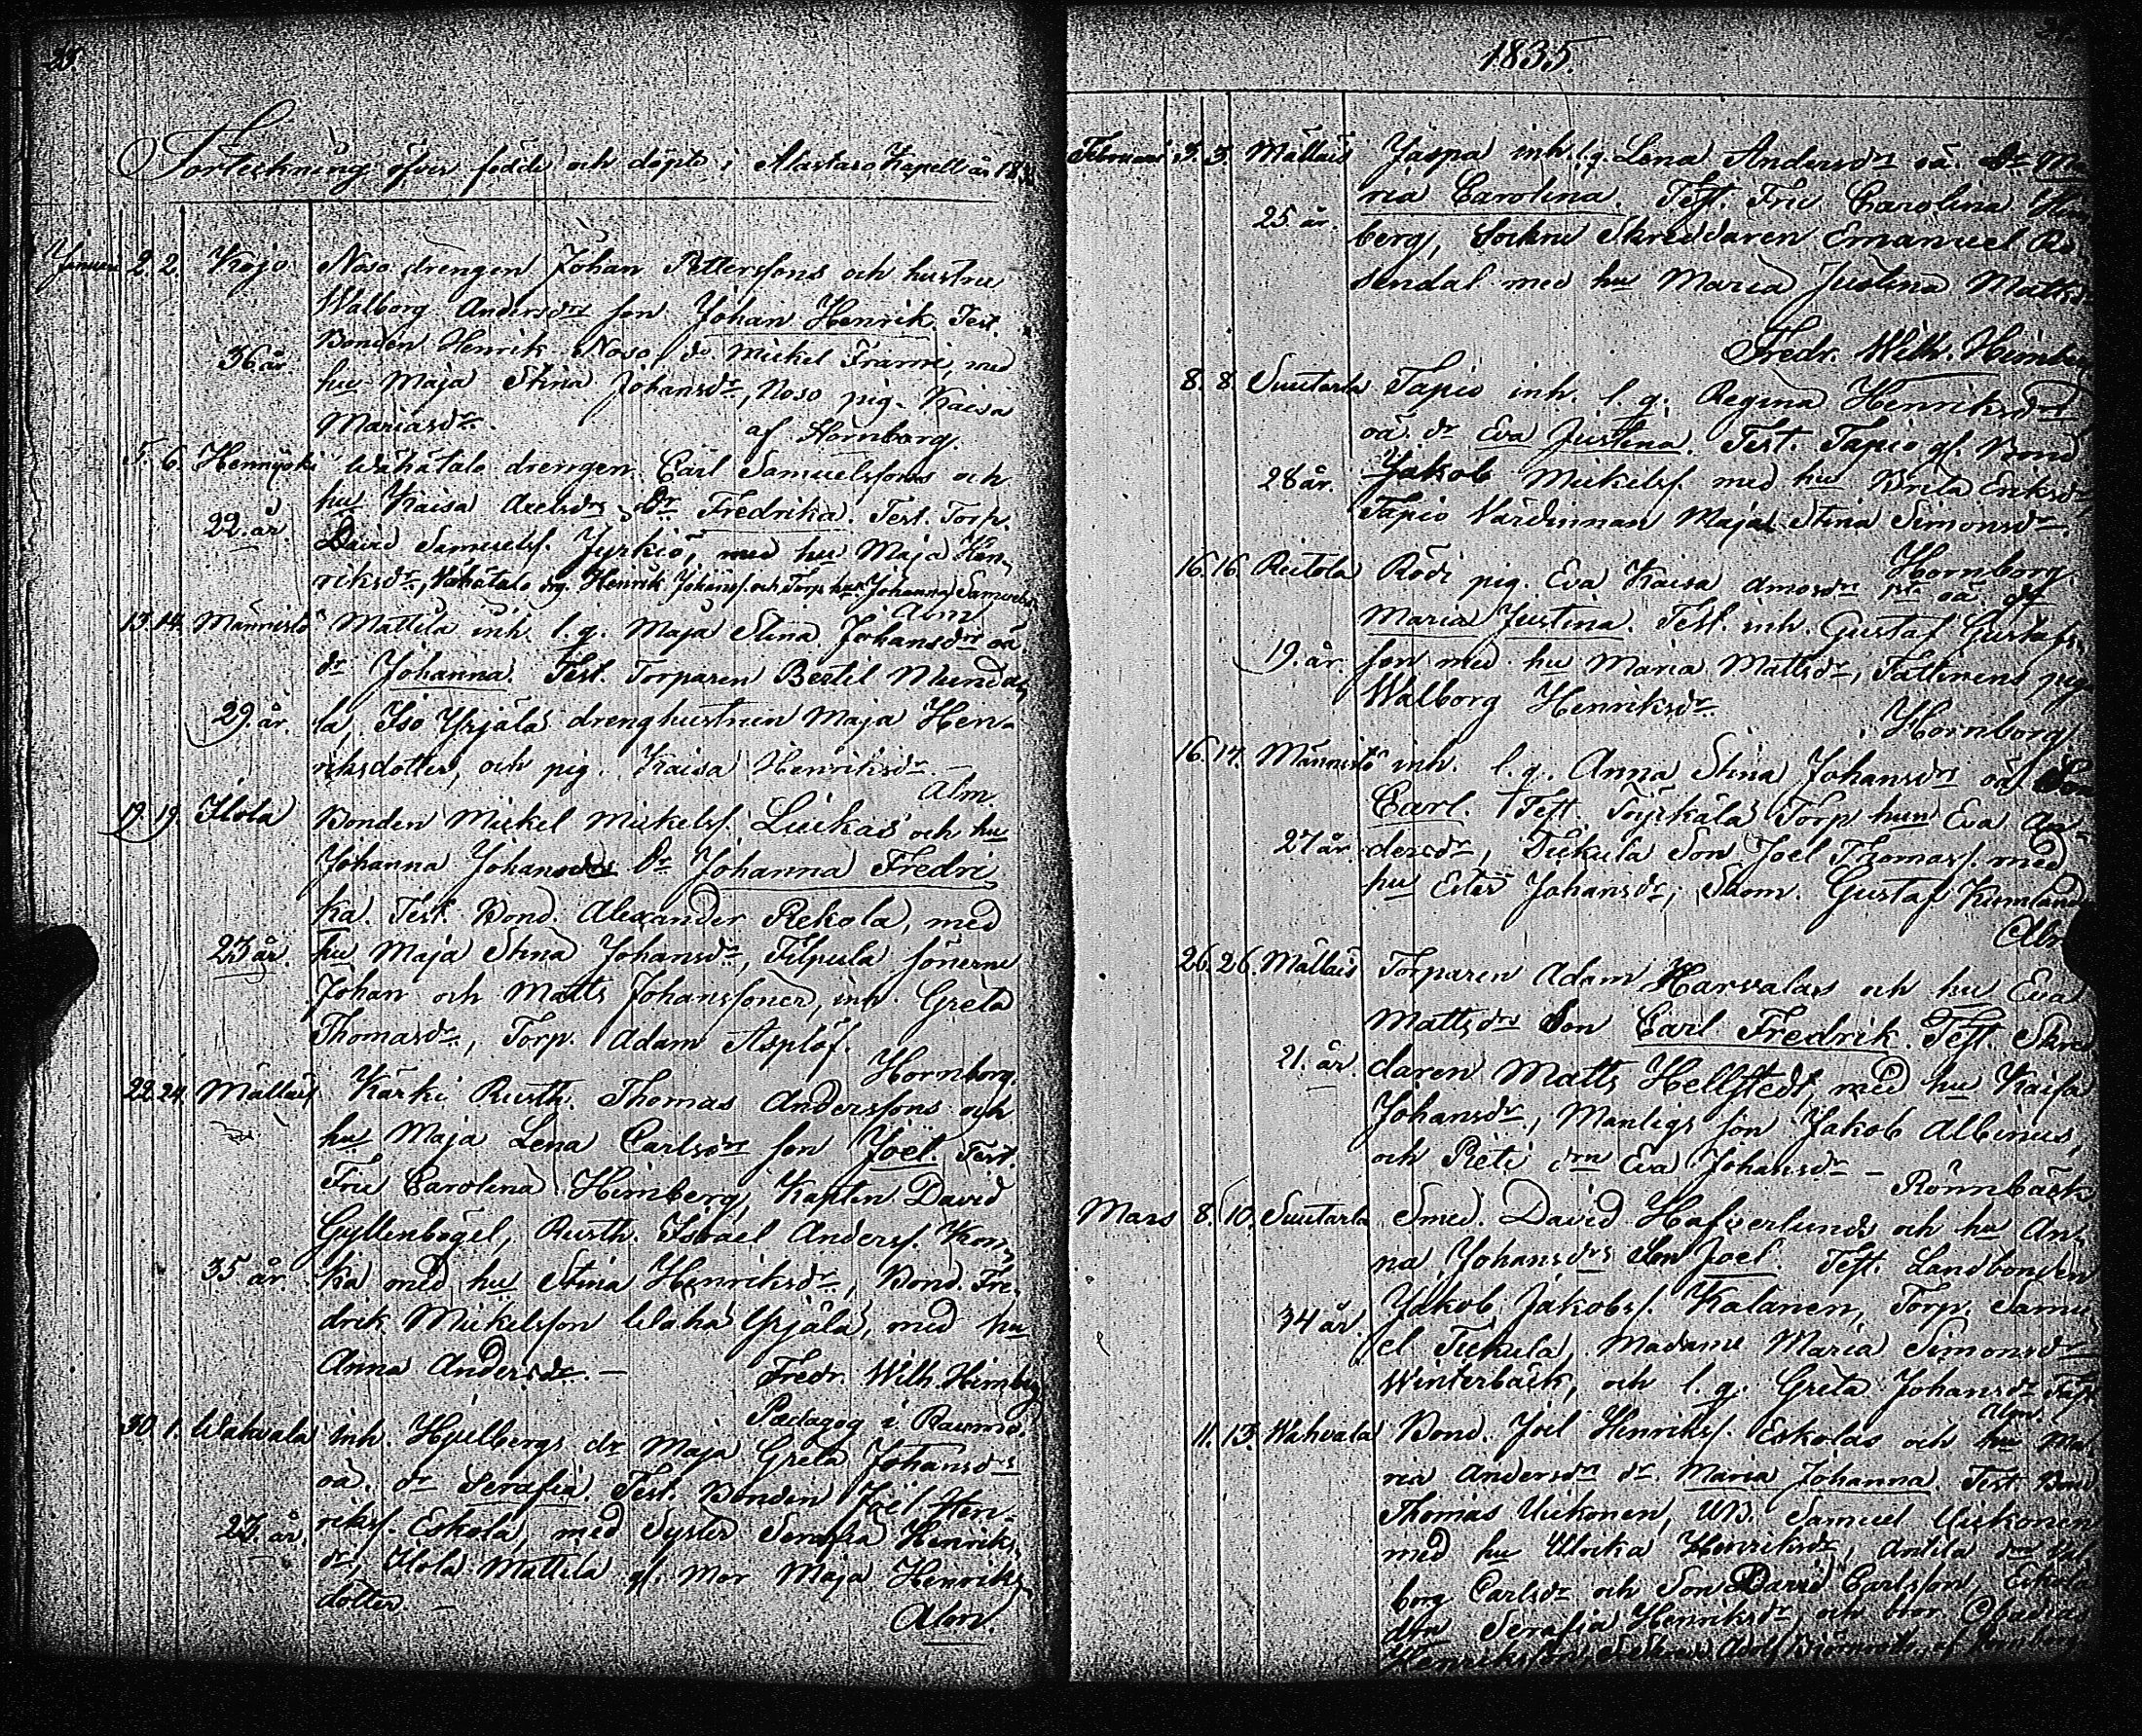 Förteckning öfver födde och döpte i Alastaro Kapell år 18
Januari 2. 2. Kojo Noso drengen Johan Pettersons och hustru
Walborg Andersdrs son Johan Henrik. Test.
Bonden Henrik Noso, do Mickel Frami, med
36 år. hu Maja Stina Johansdr, Noso pig. Kaisa
Mariasdr. af Hornborg.
5. 6. Hennijoki Wähätalo drengen Carl Samuelssons och
hu Kaisa Axelsdrs dr Fredrika. Test. Torp.
22. år. David Samuelss. Jyrkiö, med hu Maja Hen-
riksdr, Wähätalo drg. Henrik Johanss. och Torp. hun Johanna Samuelsdr
Alm
13. 14. Männistö Mattila inh. l. q. Maja Stina Johansdrs oä.
dr Johanna. Test. Torparen Bertil Munda-
29. år. la, Iso Yrjälä drenghustrun Maja Hen-
riksdotter, och pig. Kaisa Henriksdr. —
Alm.
19. 19. Ilola Bonden Mickel Mickelss. Luckas och hu
Johanna Johansdrs Dr Johanna Fredri
ka. Test. Bond. Alexander Rekola, med
23 år. hu Maja Stina Johansdr, Filpula sönerne
Johan och Matts Johanssoner, inh. Greta
Thomasdr, Torp. Adam Asplöf.
Hornborg.
22. 24. Mällais Kärki Rusth. Thomas Anderssons och
hu Maja Lena Carlsdrs son Joel. Test.
Fru Carolina Himberg, Kapten David
Gyllenbögel, Rusth. Israel Anderss. Kon-
35 år. ka med hu Stina Henriksdr, Bond. Fre-
drik Mickelsson Wähä Yrjälä, med hu
Anna Andersdr — Fredr. Wilh. Himberg
Pædagog i Raumo.
30. 1. Wahvala inh. Hjulbergs dr Maja Greta Johansdrs
oä. dr Serafia. Test. Bonden Joel Hen-
23. år. rikss. Eskola, med Syster Serafia Henriks-
dr, Ilola Mattila gl. mor Maja Henriks-
dotter — Alm.
1835.
Februari 3. 5. Mällais Jaspa inh. l. q. Lena Andersdrs oä. Dr Ma
ria Carolina. Test. Fru Carolina Him
25. år. berg, Sockne Skreddaren Emanuel Ro
sendal med hu Maria Justina Mattsdr
Fredr. Wilh. Himberg
8. 8. Suutarla Tapio inh. l. q. Regina Henriksdrs
oä. dr Eva Justina. Test. Tapio gl. Bond
28 år. Jakob Mickelss. med hu Brita Eriksdr
Tapio Värdinnan Maja Stina Simonsdr.
Hornborg
16. 16. Reitola Rödi pig. Eva Kaisa Amosdrs oä. dr
Maria Justina. Test. inh. Gustaf Gustafs-
19. år. son med hu Maria Mattsdr, pig.
Walborg Henriksdr.
Hornborg
16. 17. Männistö inh. l. q. Anna Stina Johansdrs oä. Son
Carl. Test. Torp. hun Eva An-
27 år. dersdr, Tukula Son Joel Thomass. med
hu Ester Johansdr, Gustaf
Alm
26. 26. Mällais Torparen Adam Harvalas och hu Eva
Mattsdrs Son Carl Fredrik. Test. Skred
21. år. daren Matts Hellstedt, med hu Kaisa
Johansdr, Manligs son Jakob Albinus,
och Pieti Eva Johansdr —
Rönnbäck
Mars 8. 10. Suutarla Smed. David Hafverlunds och hu An-
na Johansdrs Son Joel. Test. Landbonden
34 år. Jakob Jakobs. Kalanen, Torp. Samu
el Tukula, Madame Maria Simonsdr
Winterbäck, och l. q. Greta Johansdr
Alm.
11. 13. Wahvala Bond. Joel Henrikss. Eskolas och hu Ma
ria Andersdrs dr Maria Johanna. Test. Bond
Thomas Uckonen, Samuel Uckonen
med hu Ulrika Henriksdr, Antila Wal
borg Carlsdr och Son David Carlsson, Eskola
Serafia Henriksdr, och bror Obadias
Henriksson, Adolf af Hornborg